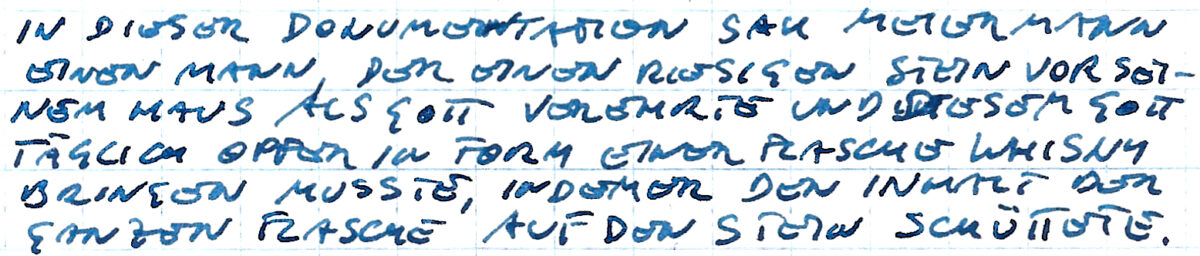 IN DIESER DOKUMENTATION SAH MEIERMANN
EINEN MANN, DER EINEN RIESIGEN STEIN VOR SEI-
NEM HAUS ALS GOTT VEREHRTE UND DIESEM GOTT
TÄGLICH OPFER IN FORM EINER FLASCHE WHISKY
BRINGEN MUSSTE, INDEM ER DEN INHALT DER
GANZEN FLASCHE AUF DEN STEIN SCHÜTTETE.